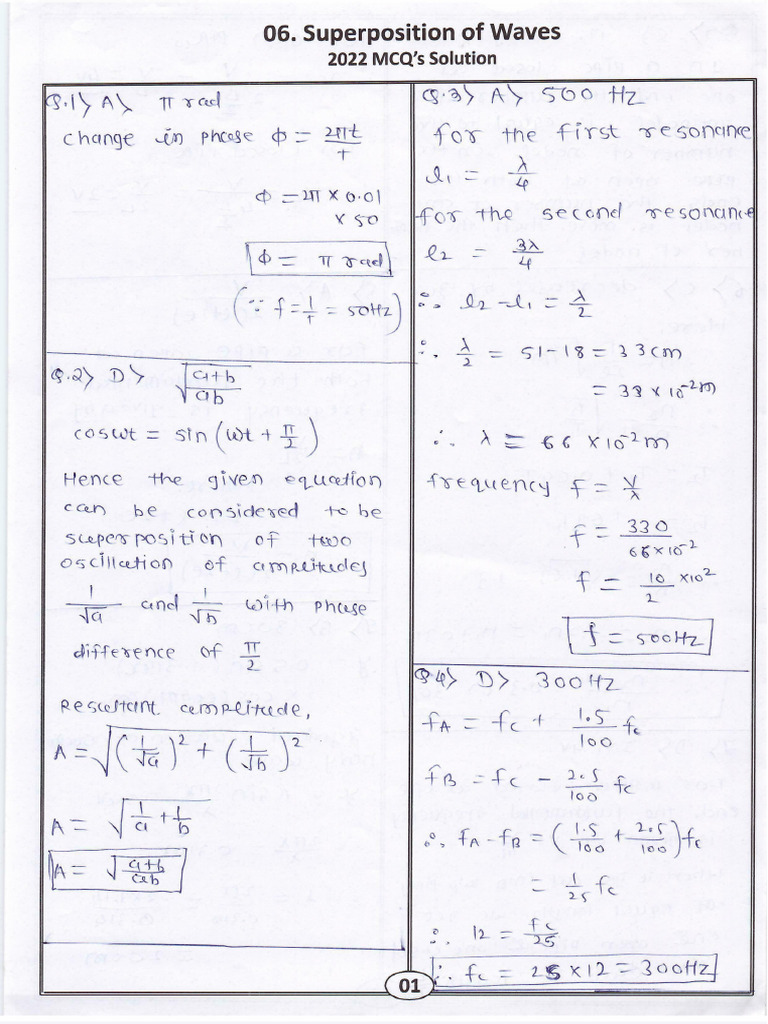 06. Superposition of Waves
2022 MCQ's Solution
Q.1> A> π rad
change in phase Φ = 2πt/T
Φ = 2π × 0.01
× 50
Φ = π rad
(∵ f = 1/T = 50Hz)
Q.2> D> √(a+b/ab)
coswt = sin (wt + π/2)
Hence the given equation
can be considered to be
superposition of two
oscillation of amplitudes
1/√a and 1/√b with phase
difference of π/2
Resultant amplitude,
A = √((1/√a)² + (1/√b)²)
A = √(1/a + 1/b)
A = √(a+b/ab)
Q.3> A> 500 Hz
for the first resonance
l1 = λ/4
for the second resonance
l2 = 3λ/4
∴ l2 - l1 = λ/2
∴ λ/2 = 51 - 18 = 33cm
= 33 × 10⁻²m
∴ λ = 66 × 10⁻²m
frequency f = V/λ
f = 330/66×10⁻²
f = 10/2 × 10²
f = 500Hz
Q.4> D> 300Hz
fA = fc + 1.5/100 fc
fB = fc - 2.5/100 fc
∴ fA - fB = (1.5/100 + 2.5/100) fc
= 1/25 fc
∴ 12 = fc/25
∴ fc = 25 × 12 = 300Hz
01